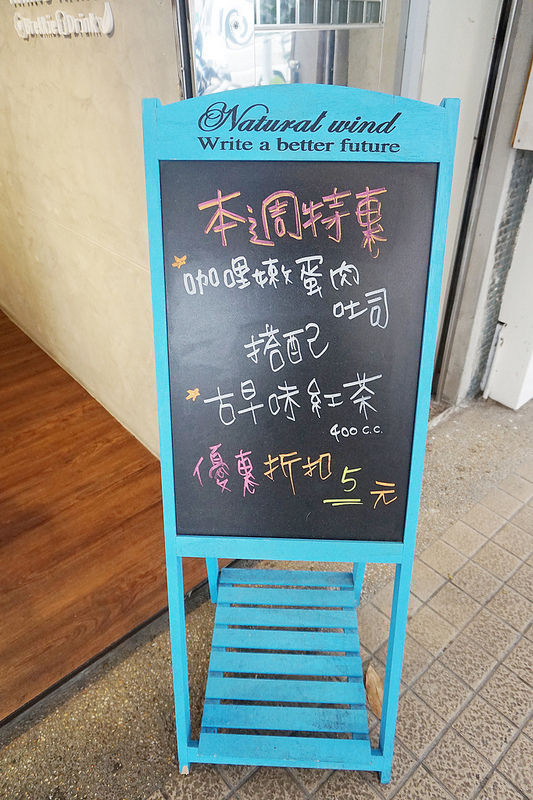 Natural wind
Write a better future
本週特惠
咖哩嫩蛋肉
吐司
搭配
古早味紅茶
400 c.c.
優惠折扣 5 元